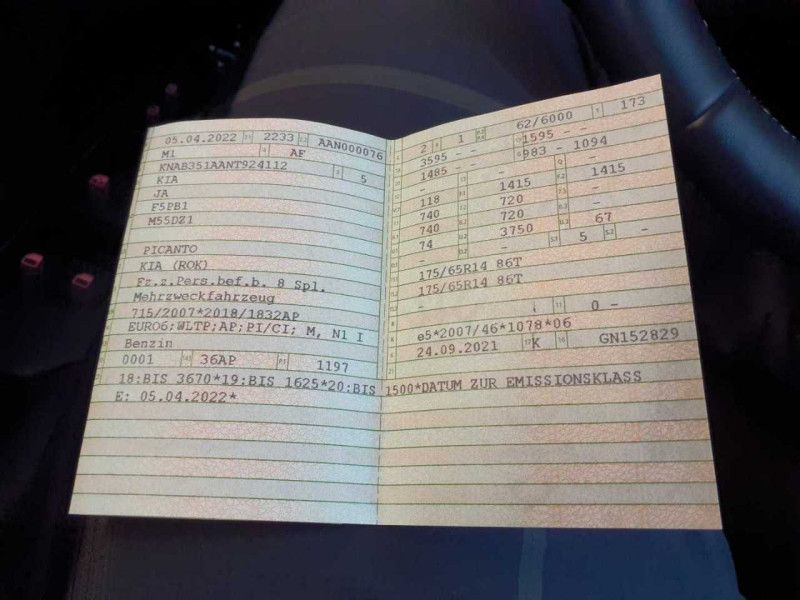 05.04.2022 2233 AAN000076
M1 AF
KNAB351AANT924112 5
KIA
JA
F5PB1
M55DZ1
PICANTO
KIA (ROK)
Fz.z.Pers.bef.b. 8 Spl.
Mehrzweckfahrzeug
715/2007*2018/1832AP
EURO6;WLTP;AP;PI/CI; M, N1 I
Benzin
0001 36AP 1197
18:BIS 3670*19:BIS 1625*20:BIS 1500*DATUM ZUR EMISSIONSKLASS
E: 05.04.2022*
2 1 62/6000 173
3595 - - 1595 - -
1485 - - 983 - 1094
- -
118 1415 1415
740 720 -
740 720 -
74 3750 67
- - 5 -
175/65R14 86T
175/65R14 86T
-
- 0 -
e5*2007/46*1078*06
24.09.2021 K GN152829